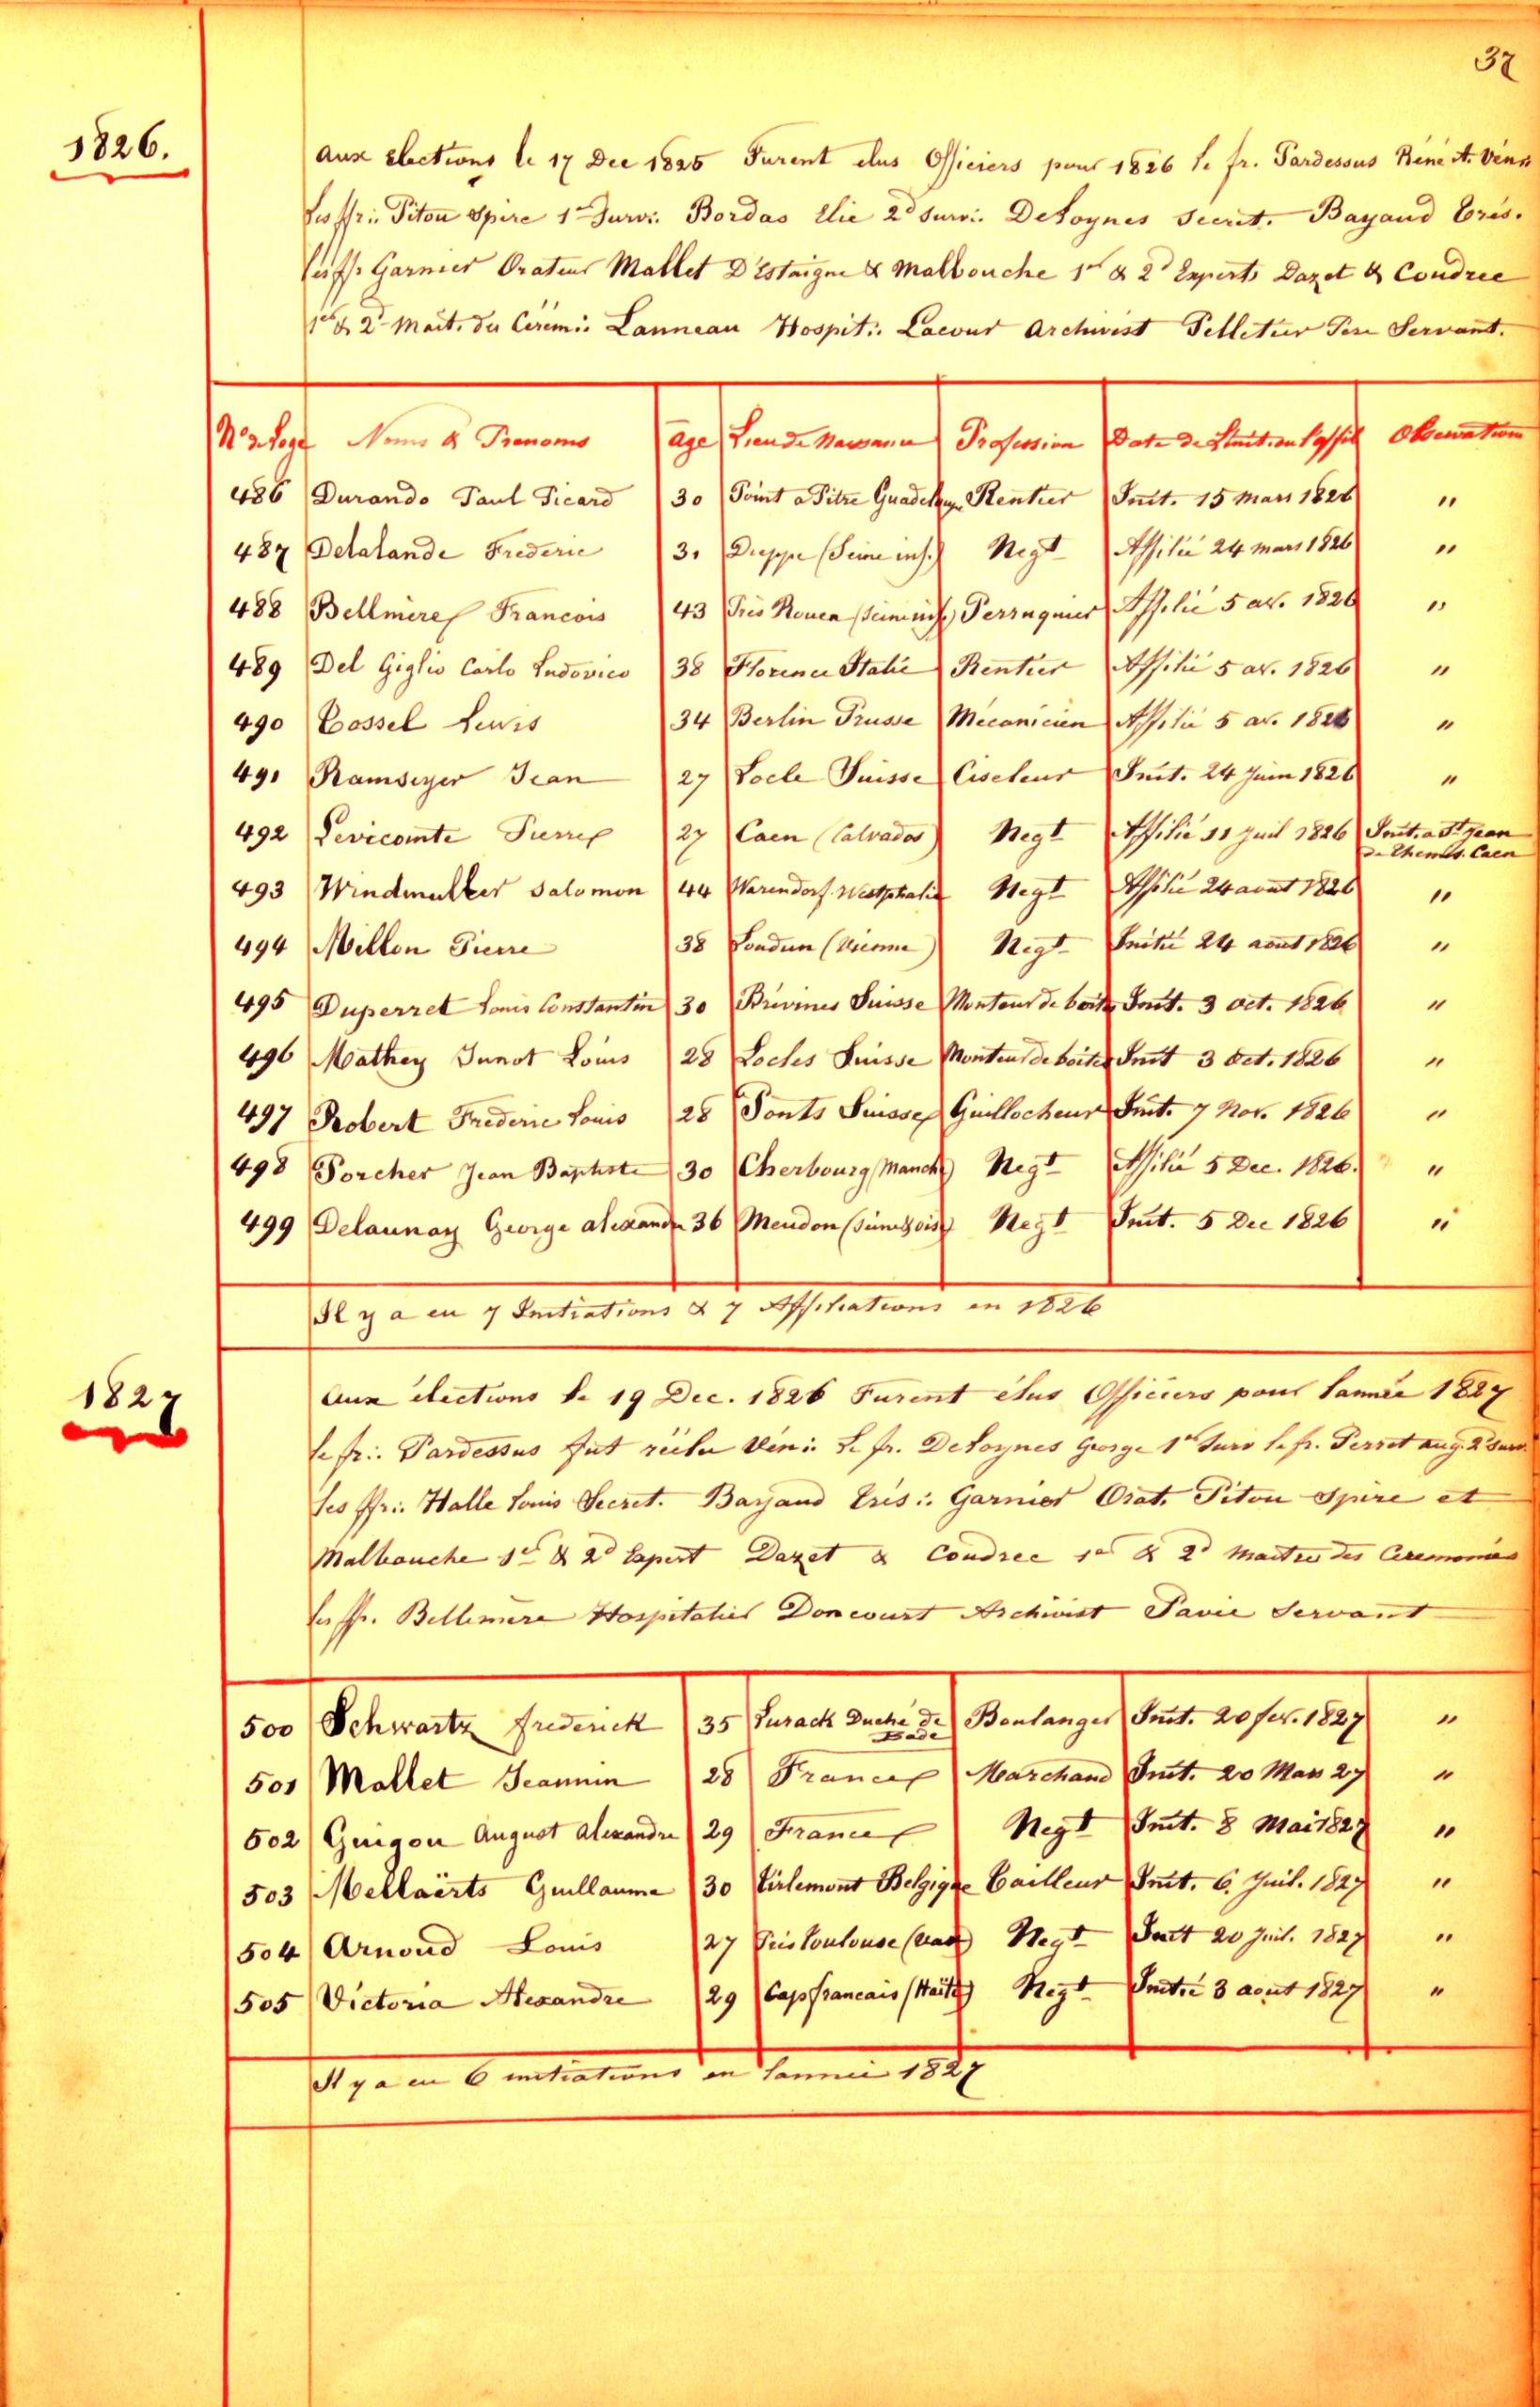 37
1826.
Aux elections le 17 Dec 1825 Furent elus Officiers pour 1826 le fr. Pardessus René A. Vén∴
Les ffr∴ Piton Spire 1er Survi∴ Bordas Elie 2d Survi∴ DeLoynes Secret. Bayaud Trés.
les ff. Garnier Orateur Mallet D'Estaigne & Malbouche 1er & 2d Experts Dazet & Condrée
1er & 2d Mait. des Cérém∴ Lanneau Hospit∴ Lacour Archivist Pelletier Pere Servant.
No de Loge Noms & Prenoms age Lieu de Naissance Profession Date de L'Init. ou l'affil Observation
486 Durando Paul Picard 30 Point a Pitre Guadeloupe Rentier Init. 15 Mars 1826 "
487 Delalande Frederic 31 Dieppe (Seine inf.) Negt Affilié 24 mars 1826 "
488 Bellmere Francois 43 Près Rouen (Seine inf.) Perruquier Affilié 5 av. 1826 "
489 Del Giglio Carlo Ludovico 38 Florence Italie Rentier Affilié 5 av. 1826 "
490 Cossel Lewis 34 Berlin Prusse Mécanicien Affilié 5 av. 1826 "
491 Ramseyer Jean 27 Locle Suisse Ciseleur Init. 24 Juin 1826 "
492 Levicomte Pierre 27 Caen (Calvados) Negt Affilié 11 Juil 1826 Init. a St Jean
de Themis. Caen
493 Windmuller Salomon 44 Warendorf. Westphalie Negt Affilié 24 aout 1826 "
494 Millon Pierre 38 Loudun (Vienne) Negt Initié 24 aout 1826 "
495 Duperret Louis Constantin 30 Brévines Suisse Monteur de boites Init. 3 oct. 1826 "
496 Mathey Junot Louis 28 Locles Suisse Monteur de boites Init 3 Oct. 1826 "
497 Robert Frederic Louis 28 Ponts Suisse Guillocheur Init. 7 Nov. 1826 "
498 Porcher Jean Baptiste 30 Cherbourg (Manche) Negt Affilié 5 Dec. 1826. "
499 Delaunay George alexandre 36 Meudon (Seine & oise) Negt Init. 5 Dec 1826 "
Il y a eu 7 Initiations & 7 Affiliations en 1826
1827
Aux élections le 19 Dec. 1826 Furent élus Officiers pour lannée 1827
le fr∴ Pardessus fut réélu Vén∴ Le fr. DeLoynes George 1er Surv le fr. Perret aug. 2d Surv.
les ffr∴ Halle Louis Secret. Bayaud Trés∴ Garnier Orat. Piton Spire et
Malbouche 1er & 2d Expert Dazet & Condrée 1er & 2d Maitre des Ceremonies
les ffr. Bellemere Hospitalier Doncourt Archivist Pavie Servant
500 Schwartz frederick 35 Lurack Duché de Boulanger Init. 20 fev. 1827 "
Bade
501 Mallet Jeannin 28 France Marchand Init. 20 Mars 27 "
502 Guigon August Alexandre 29 France Negt Init. 8 Mai 1827 "
503 Mellaërts Guillaume 30 Tirlemont Belgique Tailleur Init. 6. Juil. 1827 "
504 Arnoud Louis 27 Près Toulouse (var) Negt Init 20 Juil. 1827 "
505 Victoria Alexandre 29 Cap francais (Haïti) Negt Initié 3 aout 1827 "
Il y a eu 6 initiations en lannée 1827